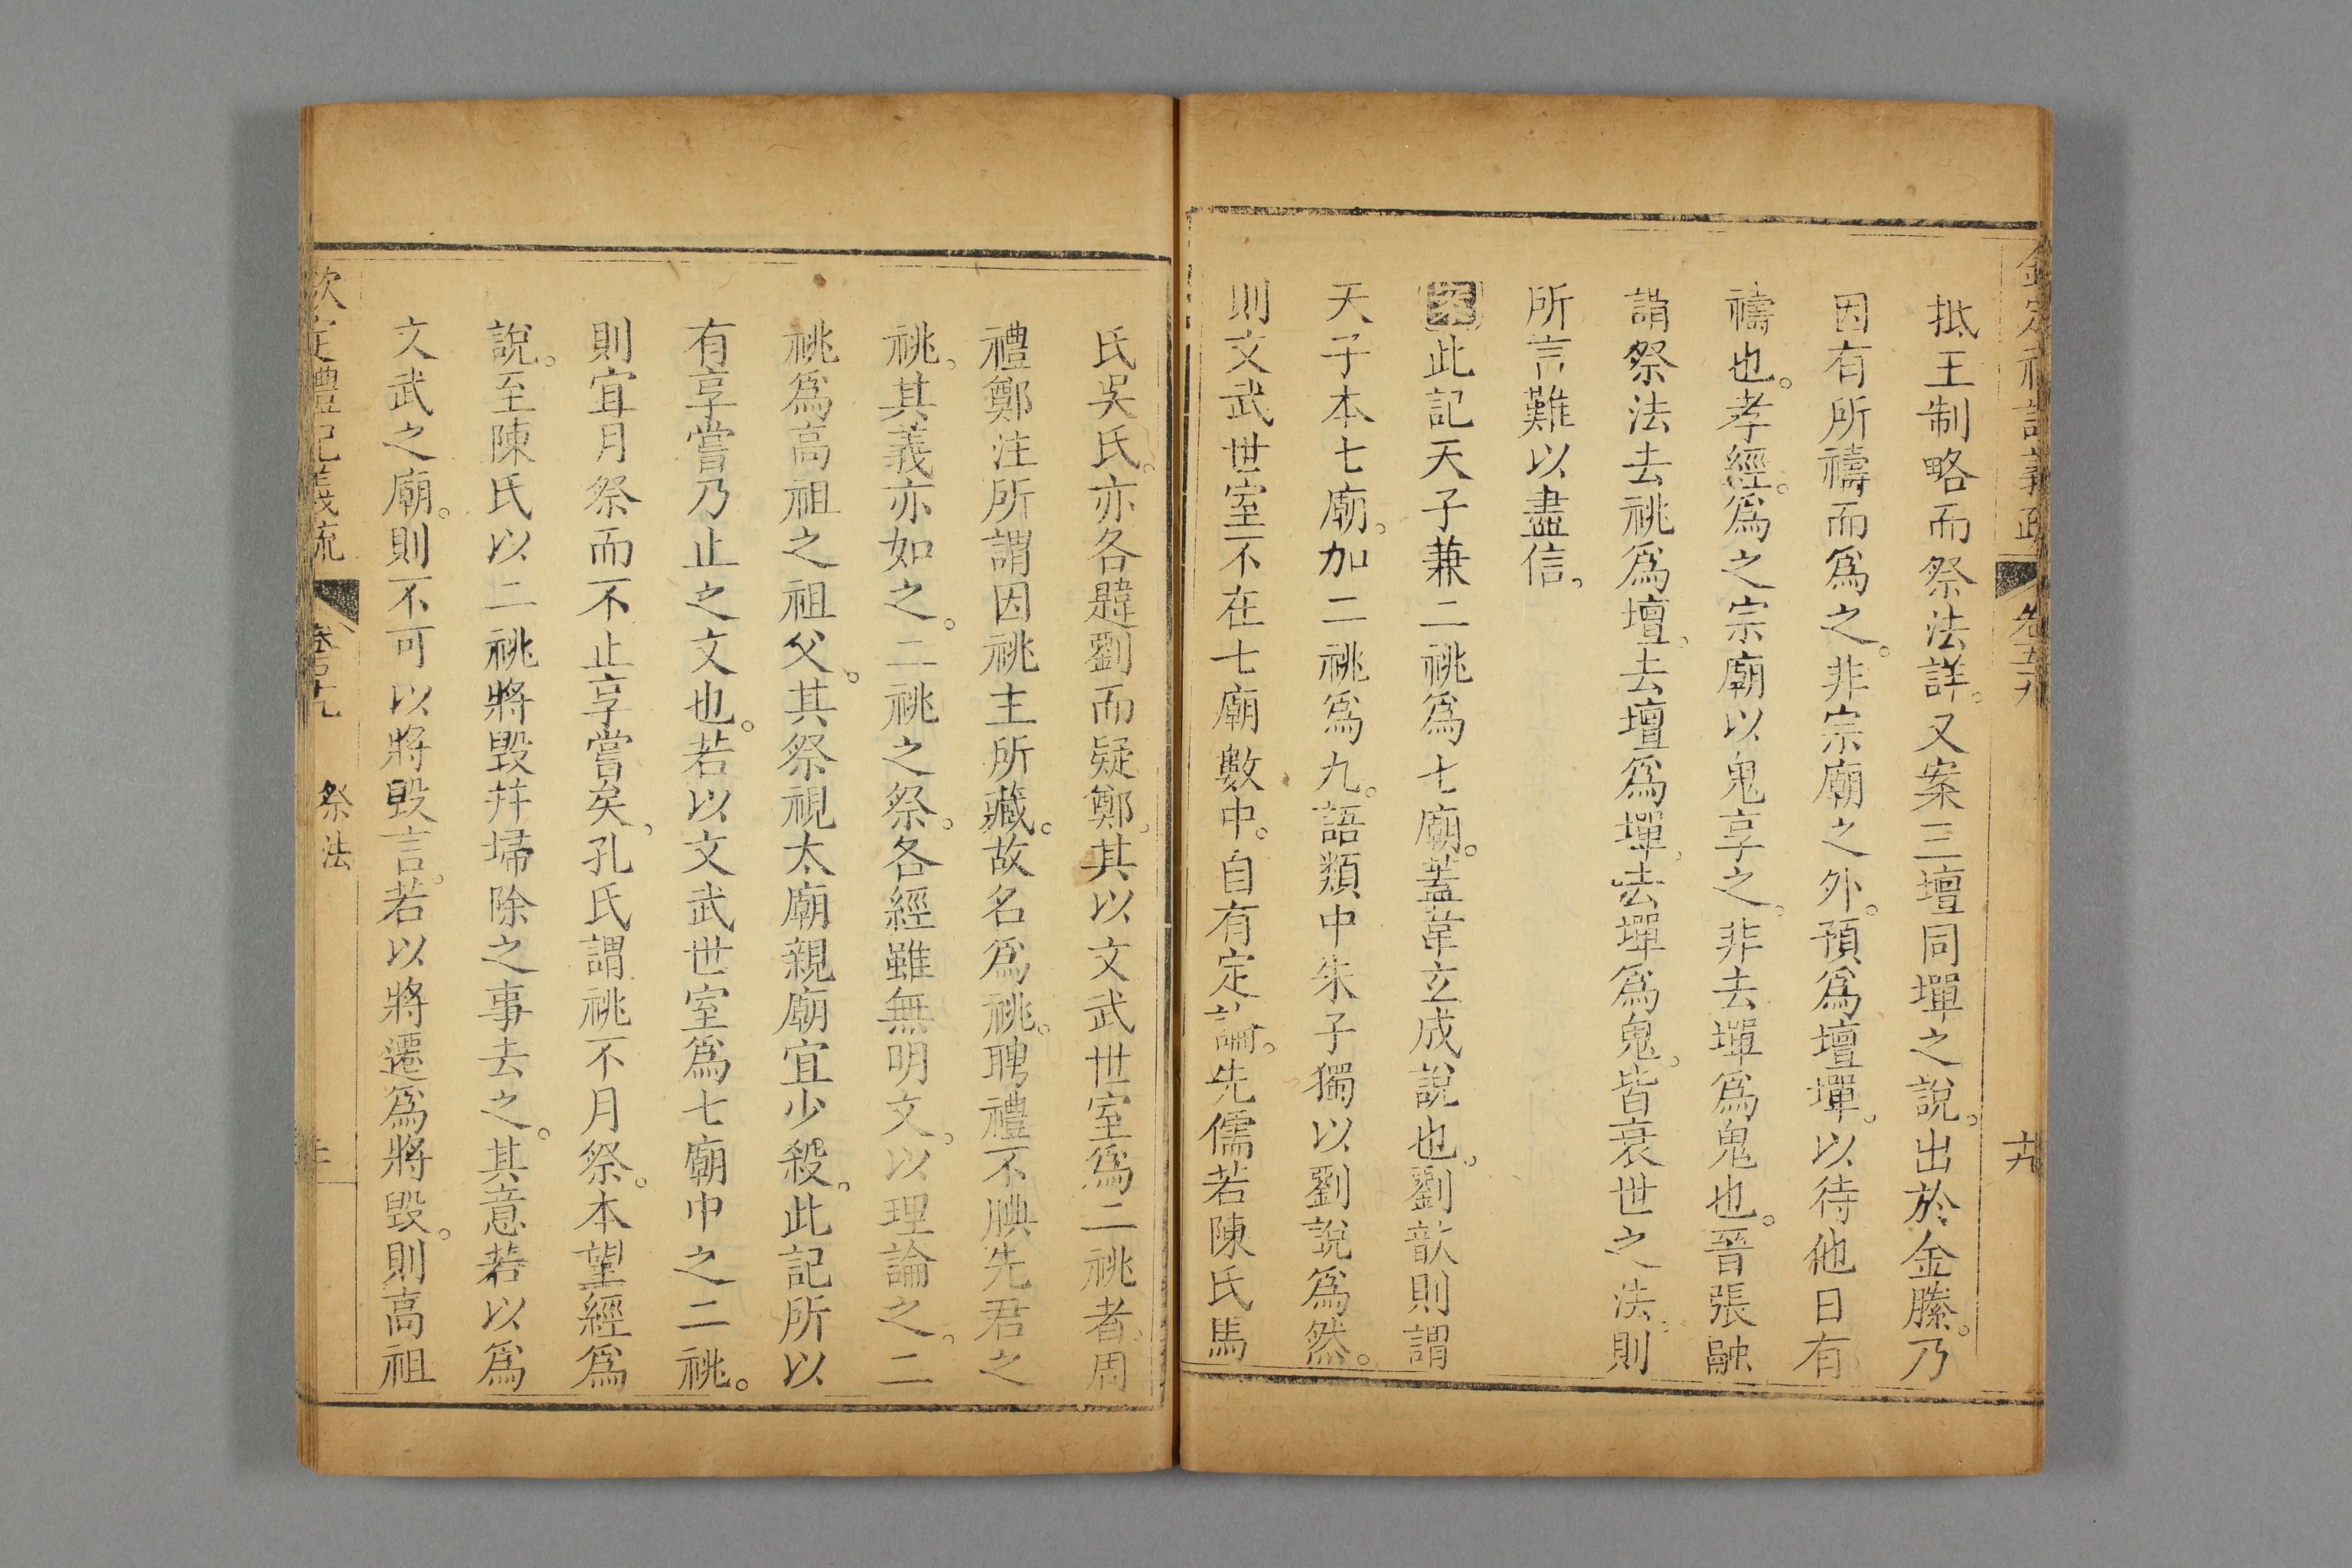 抵王制略而祭法詳。又案三壇同墠之說。出於金縢。乃
因有所禱而爲之。非宗廟之外。預爲壇墠。以待他日有
禱也。孝經。爲之宗廟以鬼享之。非去墠爲鬼也。晉張融
謂祭法去祧爲壇。去壇爲墠。去墠爲鬼。皆衰世之法。則
所言難以盡信。
案此記天子兼二祧爲七廟。蓋韋玄成說也。劉歆則謂
天子本七廟。加二祧爲九。語類中朱子獨以劉說爲然。
則文武世室不在七廟數中。自有定論。先儒若陳氏馬
氏吳氏。亦各韙劉而疑鄭。其以文武世室爲二祧者。周
禮鄭注所謂因祧主所藏。故名爲祧。聘禮不腆先君之
祧。其義亦如之。二祧之祭。各經雖無明文。以理論之。二
祧爲高祖之祖父。其祭視太廟親廟宜少殺。此記所以
有享嘗乃止之文也。若以文武世室爲七廟中之二祧。
則宜月祭而不止享嘗矣。孔氏謂祧不月祭。本望經爲
說。至陳氏以二祧將毀幷埽除之事去之。其意若以爲
文武之廟。則不可以將毀言。若以將遷爲將毀。則高祖
欽定禮記義疏
祭法